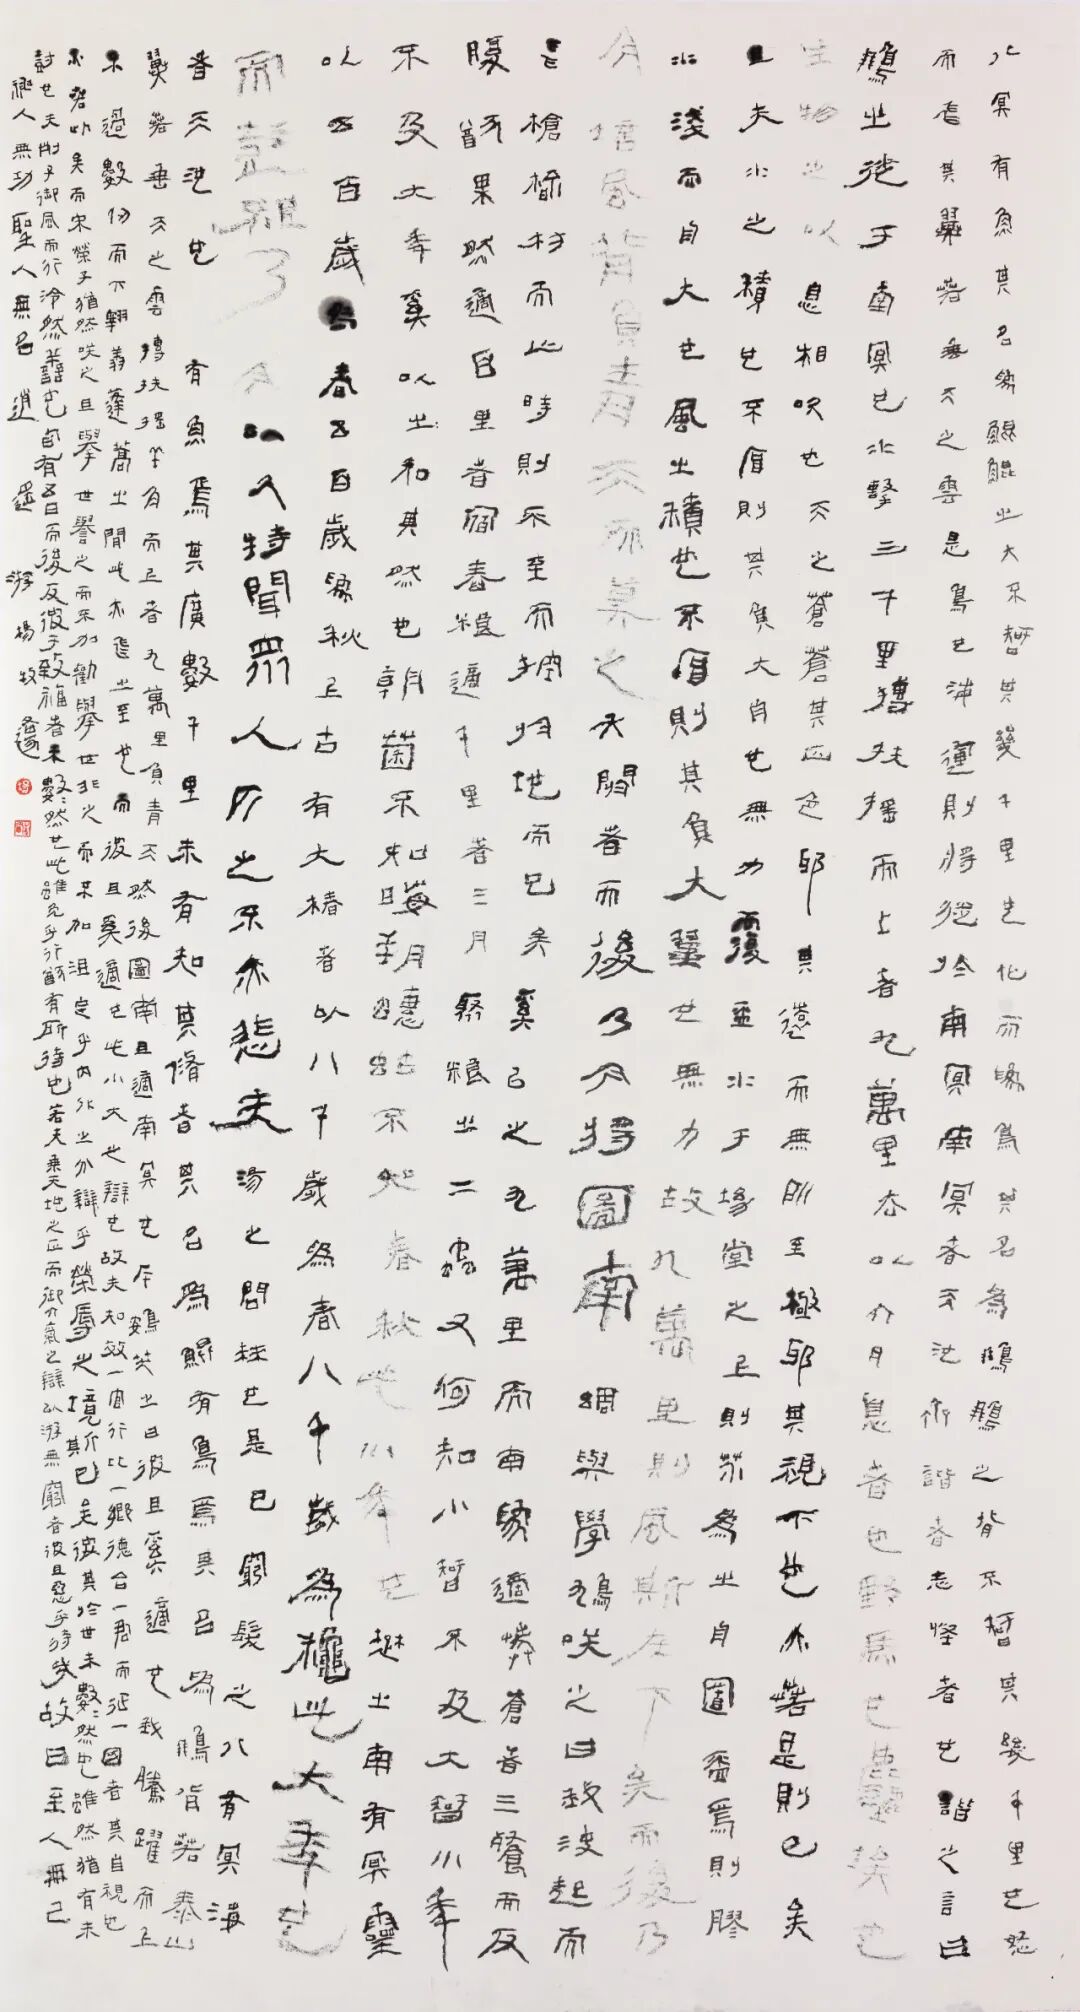 北冥有魚其名為鯤鯤之大不知其幾千里也化而為鳥其名為鵬鵬之背不知其幾千里也怒
而飛其翼若垂天之雲是鳥也海運則將徙於南冥南冥者天池齊諧者志怪者也諧之言曰
鵬之徙于南冥也水擊三千里摶扶搖而上者九萬里去以六月息者也野馬也塵埃也
生物之以息相吹也天之蒼蒼其正色邪其遠而無所至極邪其視下也亦若是則已矣
且夫水之積也不厚則其負大舟也無力而覆杯水于坳堂之上則芥為之舟置杯焉則膠
水淺而舟大也風之積也不厚則其負大翼也無力故九萬里則風斯在下矣而後乃
今培風背負青天而莫之夭閼者而後乃今將圖南蜩與學鳩笑之曰我決起而
飛槍榆枋而止時則不至而控於地而已矣奚以之九萬里而南為適莽蒼者三餐而反
腹猶果然適百里者宿舂糧適千里者三月聚糧之二蟲又何知小智不及大智小年
不及大年奚以之知其然也朝菌不知晦朔蟪蛄不知春秋此小年也楚之南有冥靈
以五百歲為春五百歲為秋上古有大椿者以八千歲為春八千歲為秋此大年也
而彭祖乃今以久特聞眾人匹之不亦悲夫湯之問棘也是已窮髮之北有冥海
者天池也有魚焉其廣數千里未有知其脩者其名為鯤有鳥焉其名為鵬背若泰山
翼若垂天之雲摶扶搖羊角而上者九萬里負青天然後圖南且適南冥也斥鴳笑之曰彼且奚適也我騰躍而上
不過數仞而下翱翔蓬蒿之間此亦飛之至也而彼且奚適也此小大之辯也故夫知效一官行比一鄉德合一君而徵一國者其自視也
亦若此矣而宋榮子猶然笑之且舉世譽之而不加勸舉世非之而不加沮定乎內外之分辯乎榮辱之境斯已矣彼其於世未數數然也雖然猶有未
樹也夫列子御風而行泠然善也旬有五日而後反彼于致福者未數數然也此雖免乎行猶有所待也若夫乘天地之正而御六氣之辯以游無窮者彼且惡乎待哉故曰至人無己
神人無功聖人無名 逍遙游 楊牧